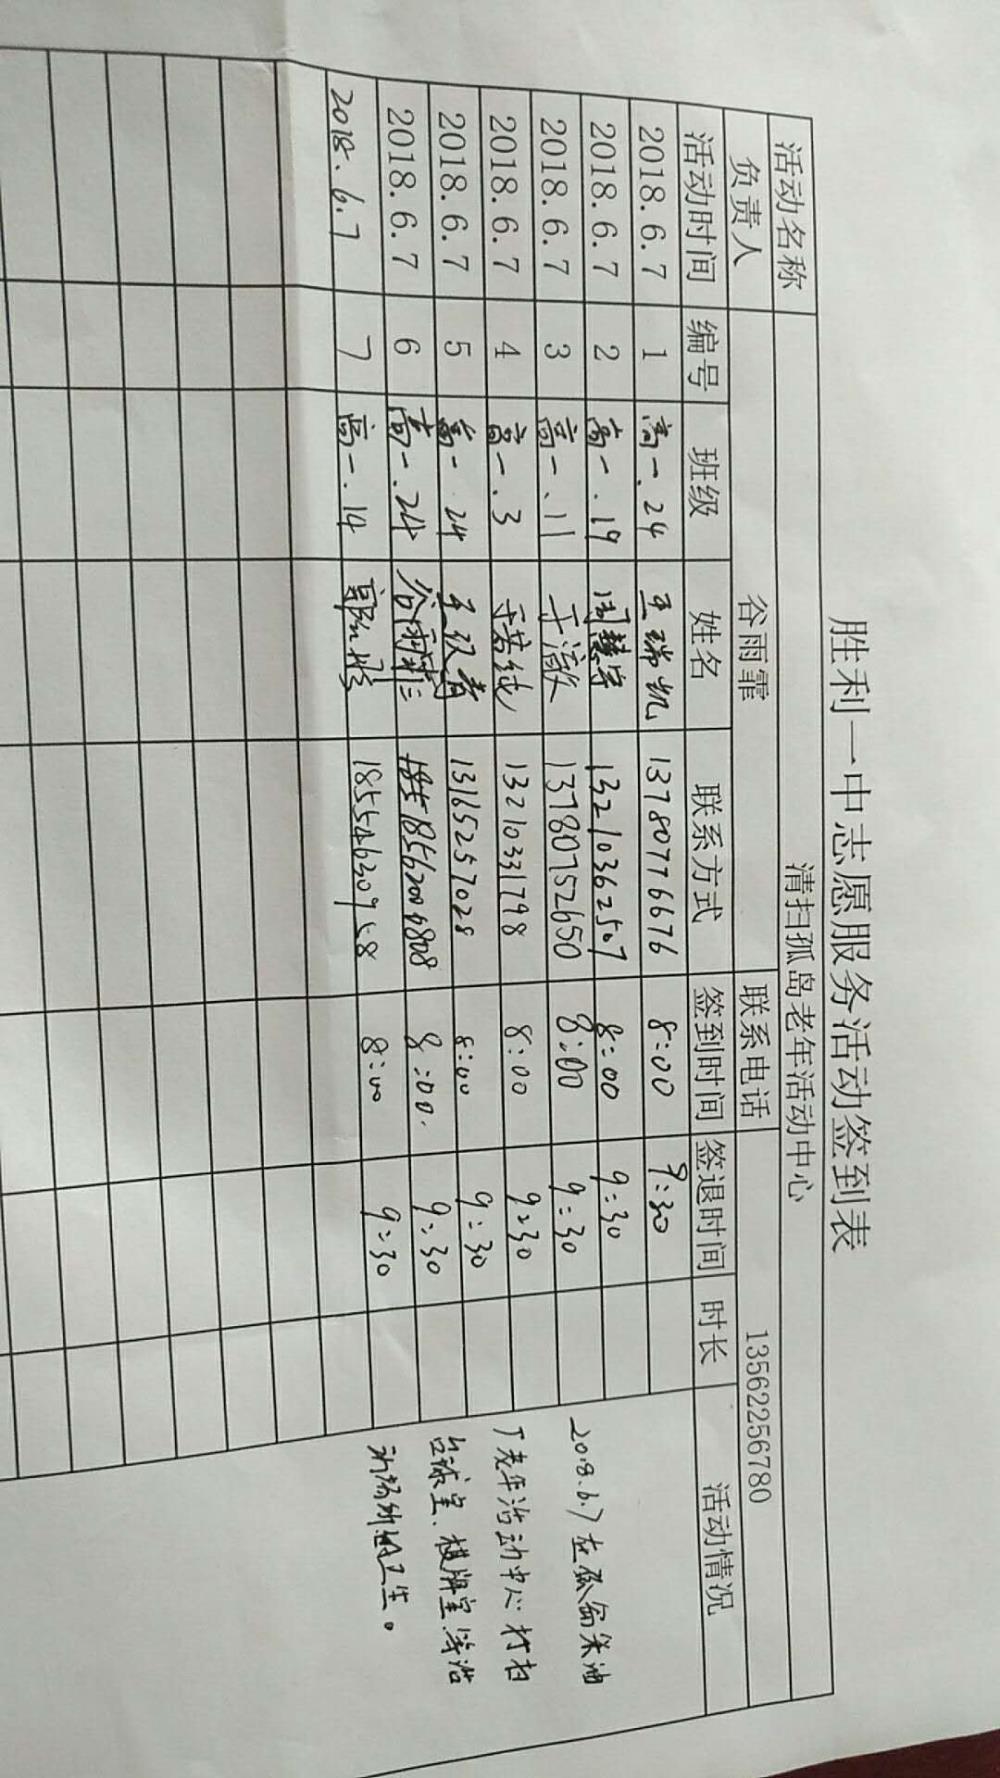 胜利一中志愿服务活动签到表
活动名称 清扫孤岛老年活动中心
负责人 谷雨霏 联系电话 13562256780
活动时间 编号 班级 姓名 联系方式 签到时间 签退时间 时长 活动情况
2018.6.7 1 高一.24 王瑞凯 13780776676 8:00 9:30
2018.6.7 2 高一.19 周慧宇 13210362507 8:00 9:30
2018.6.7 3 高一.11 于澈 13780752650 8:00 9:30
2018.6.7 4 高一.3 于若纯 13210331798 8:00 9:30
2018.6.7 5 高一.24 13165257028 8:00 9:30
2018.6.7 6 高一.24 谷雨霏 18562006808 8:00. 9:30
2018.6.7 7 高一.14 18554630958 8:00 9:30
2018.6.7在孤岛采油
厂老年活动中心打扫
台球室.棋牌室等活
动场所的卫生。